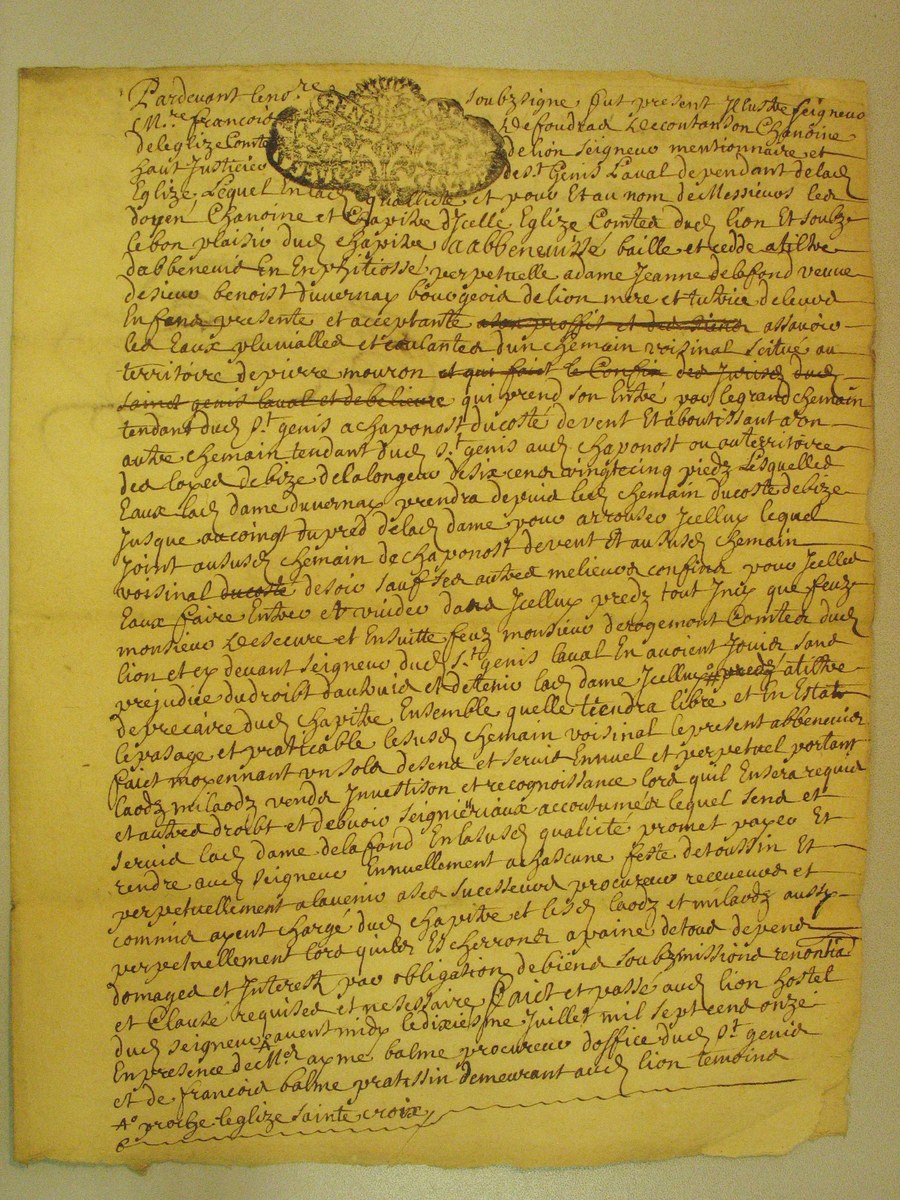 Pardevant le no.re soubzsigne fut present Illustre seigneur
M.re francois de foudras de coutanson Chanoine
de leglize Comte de lion seigneur mentionnaire et
haut Justicier de s.t Genis Laval dependant de lad
Eglize Lequel En lad quallitté et pour Et au nom de Messieurs les
doyen Chanoine et Chapitre d'Icelle Eglize Comtes dud lion Et soubz
le bon plaisir dud chapitre a abbeneuissé baille et cedde a tiltre
dabbeneuis En Enphitiossé perpetuelle a dame Jeanne delafond veuve
de sieur benoist duvernay bourgeois de lion mere et tutrice de leurs
Enfens presente et acceptante a son proffit et des siens assavoir
les Eaux pluvialles et coulantes d'un chemain voizinal scitué au
territoire de pierre mouron et qui fait le Confin des Jurisd dud
sainct genis laval et de belieure qui prend son Entré par le grand chemain
tendant dud s.t genis a chaponost du costé de vent Et aboutissant a ron
autre chemain tendant dud s.t genis aud chaponost ou au territoire
des loyes de bize de la longeur de six cens vingt cinq piedz Lesquelles
Eaux lad dame duvernay prendra depuis led chemain du costé de bize
Jusque au coingt du pred de lad dame pour arrouser Icelluy lequel
Joint au susd chemain de chaponost de vent Et au susd chemain
voisinal du costé de soir sauf ses autres melieurs confins pour Icelles
Eaux faire Entrer et vuider dans Icelluy predz tout Iniy que feuz
monsieur de secure et Ensuitte feuz monsieur de rogemont Comtes dud
lion et cy devant seigneur dud s.t genis laval En avoient Jouis sans
prejudice du droibt dautruis et de tenir lad dame Icelluy predz a tiltre
de precaire dud chapitre Ensemble quelle tiendra libre et in Estat
le pasage et praticable le susd chemain voisinal le present abbeneuis
faict moyennant un sols de sens et servis Ennuel et perpetuel portant
laodz milaodz vends Investison et recognoissance lors quil En sera requis
et autres droibt et debvoir seignieriaux accoutumes lequel sens et
servis lad dame delafond En la susd qualicté promet payer Et
rendre aud seigneur Ennuellement a chascune feste de toussin Et
perpetuellement a lavenir a ses sucesseurs procureur receveurs et
commis ayent chargé dud chapitre et lesd laodz et milaodz aussy
perpetuellement lors quiles Escherrons a paine de tous depens
domages et Interestz par obligation de biens soubzmissions renontia
et Clause requises et nesessaire faict et passe aud lion hostel
dud seigneur avent midy le dixiesme Juillet mil sept cens onze
En presence de M.e ayme balme procureur doffice dud s.t genis
et de francois balme pratissin demeurant aud lion temoins
A° proche leglize sainte croix